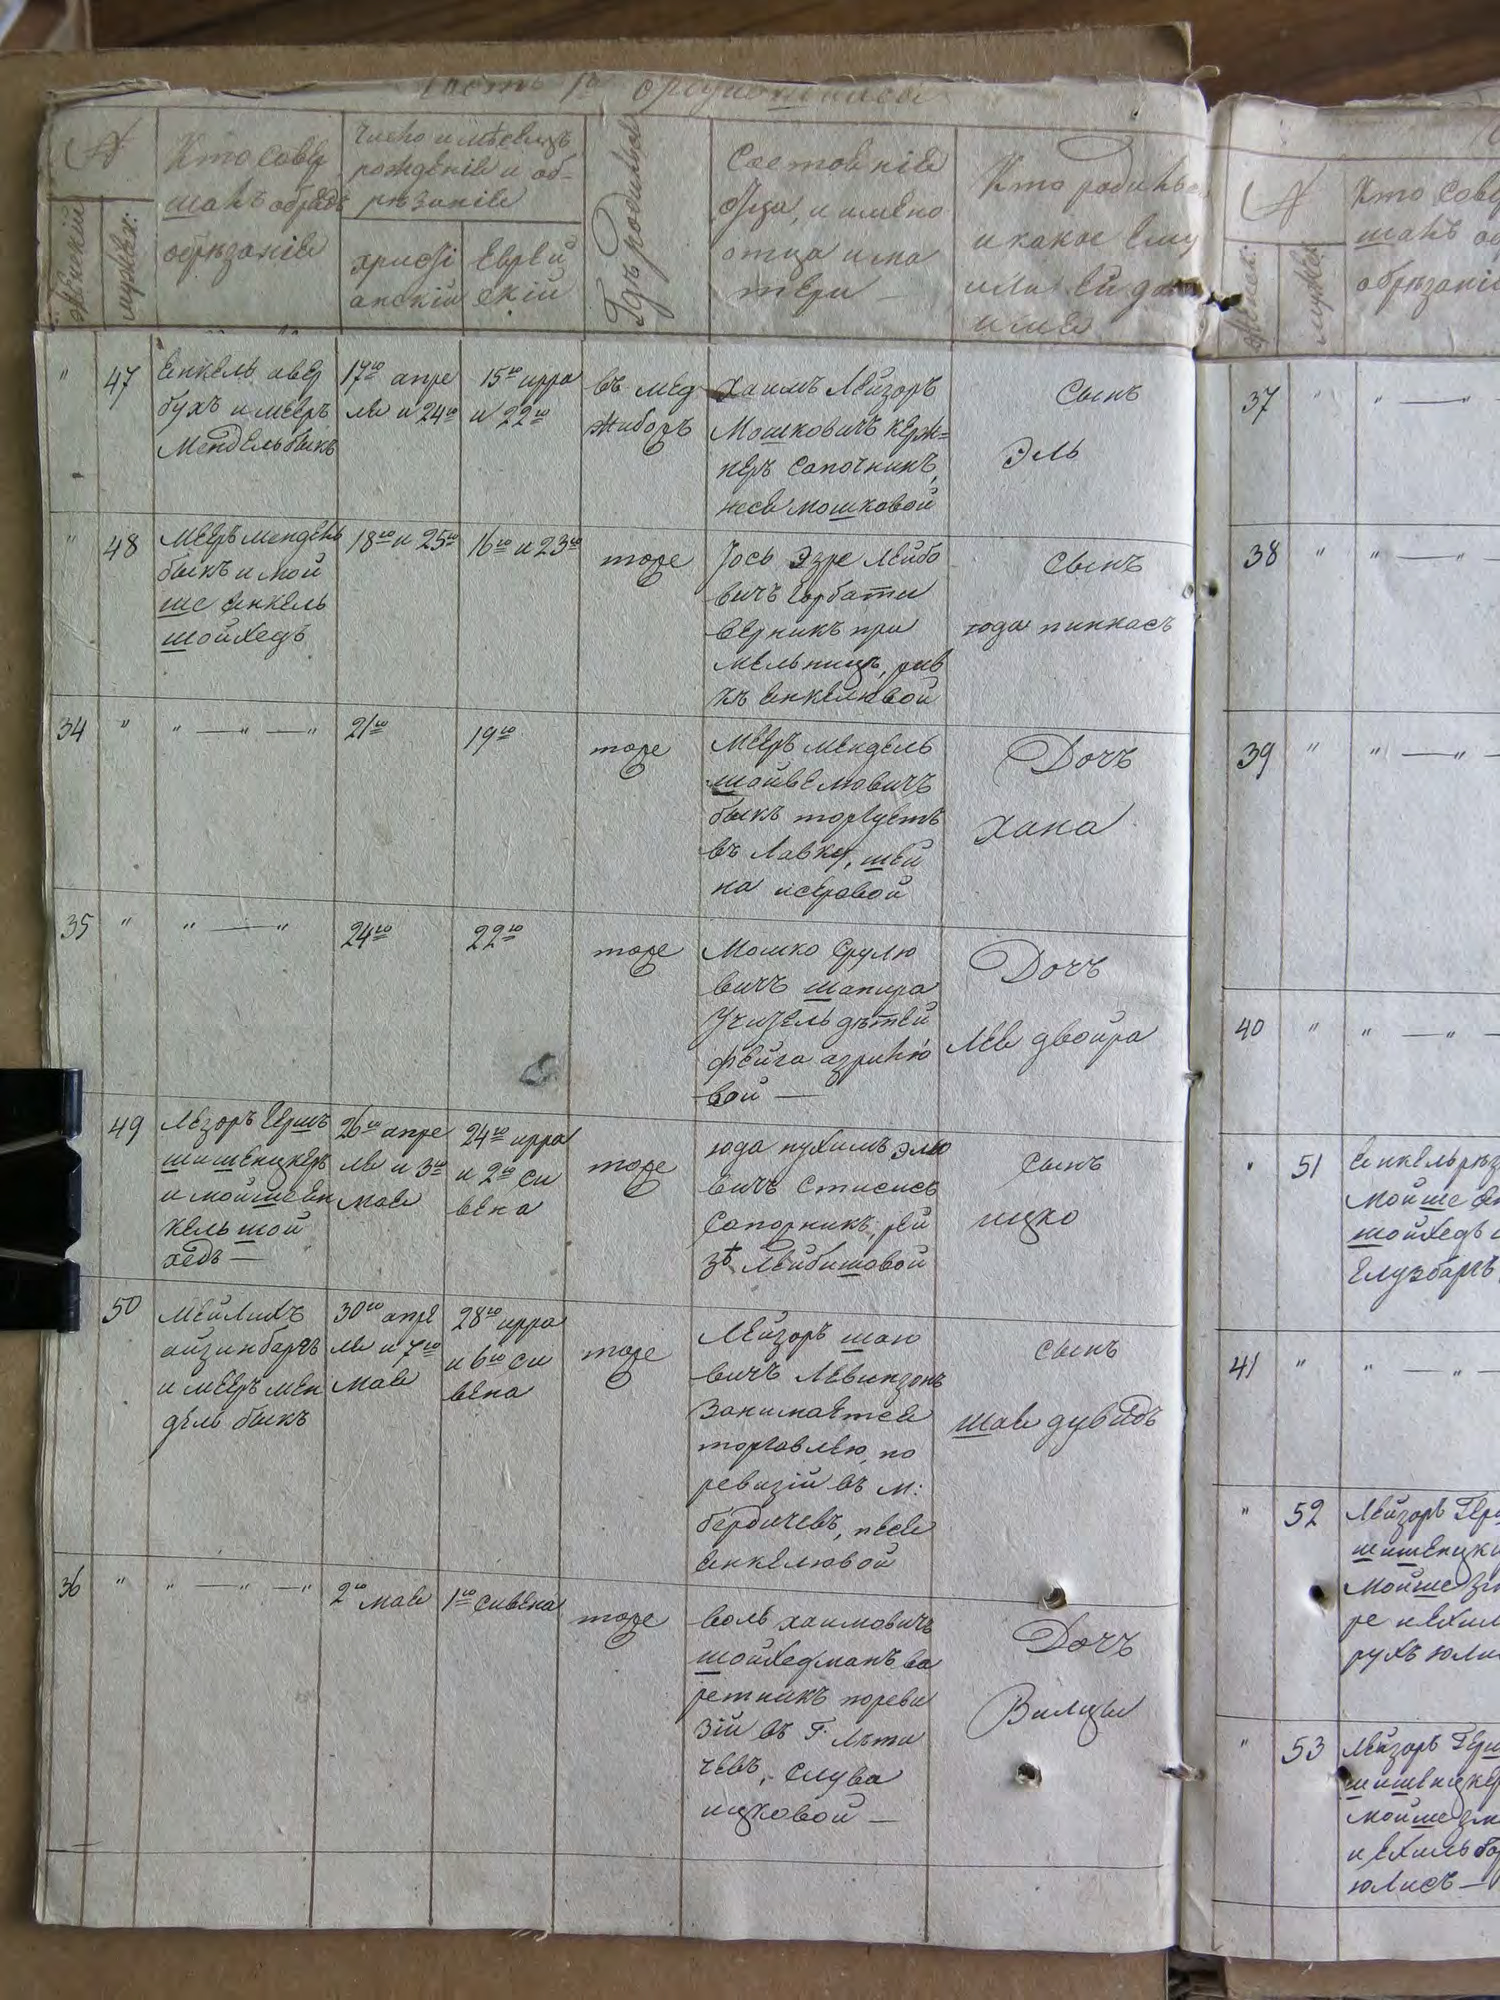 Часть 1я о родившихся
№
Женский
мужеск:
Кто совер
шалъ обрядъ
обрѣзанія
Число и мѣсяцъ
рожденія и об-
рѣзанія
христі
анскій
Еврей
скій
Гдѣ родился
Состояніе
отца, и имена
отца и ма
тери —
Кто родился
и какое ему
или ей дано
имя
" 47
Янкель авер
бухъ и мееръ
Мендель быкъ
17го апре
ля и 24го
15го ирра
и 22го
въ мед
жибожъ
Хаимъ Лейзоръ
Мошковичъ керж=
неръ сапочникъ,
неся мошковой
Сынъ
Эль
" 48
Мееръ мендель
быкъ и мой
ше янкель
шойхедъ
18го и 25го
16го и 23го
тоже
Іось Эзре Лейбо
вичъ горбати
верникъ при
мельницѣ, рив
къ янкелювой
сынъ
юда пинкасъ
34 " " — " — "
21го
19го
тоже
Мееръ мендель
шойвелювичъ
быкъ торгуетъ
въ лавку, шей
на исеровой
Дочъ
хана
35 " " — "
24го
22го
тоже
Мошко Срулю
вичъ шапира
Учитель дѣтей
фейга азрилю
вой —
Дочъ
Лея двойра
49
Лезоръ Герш
шишеницкеръ
и мойше Ян
кель шой
хедъ —
26го апре
ля и 3го
мая
24го ирра
и 2го си
вена
тоже
юда нухимъ элю
вичъ стисисъ
сапорникъ, рей
зѣ Лейбишовой
сынъ
ицко
50
Мейлихъ
айзинбаргъ
и мееръ мен
дель быкъ
30го апре
ля и 7го
мая
28го ирра
и 6го си
вена
тоже
Лейзоръ шаю
вичъ Левинзонъ
Занимается
торговлею, по
ревизіи въ м:
бердичевъ, песя
янкелювой
сынъ
шая дувидъ
36 " " — " — "
2го мая
1го сивена
тоже
воль хаимовичъ
шойхедманъ ва
ретникъ пореви
зіи въ Г. Лѣти
чевъ, слува
ицковой —
Дочъ
Вилцы
№
Женск:
мужес:
Кто сове
шалъ об
обрѣзані
37 " " — "
38 " " — "
39 " " — "
40 " " — "
" 51
Янкель рѣз
Мойше Ян
шойхедъ и
Елузбаргъ
41 " " — "
" 52
Лейзоръ Герш
шишеницки
Мойше Эл
ре и ехил
рухъ юли
" 53
Лейзоръ Герш
шишеницкер
мойше эл
и ехиль бор
юлисъ —